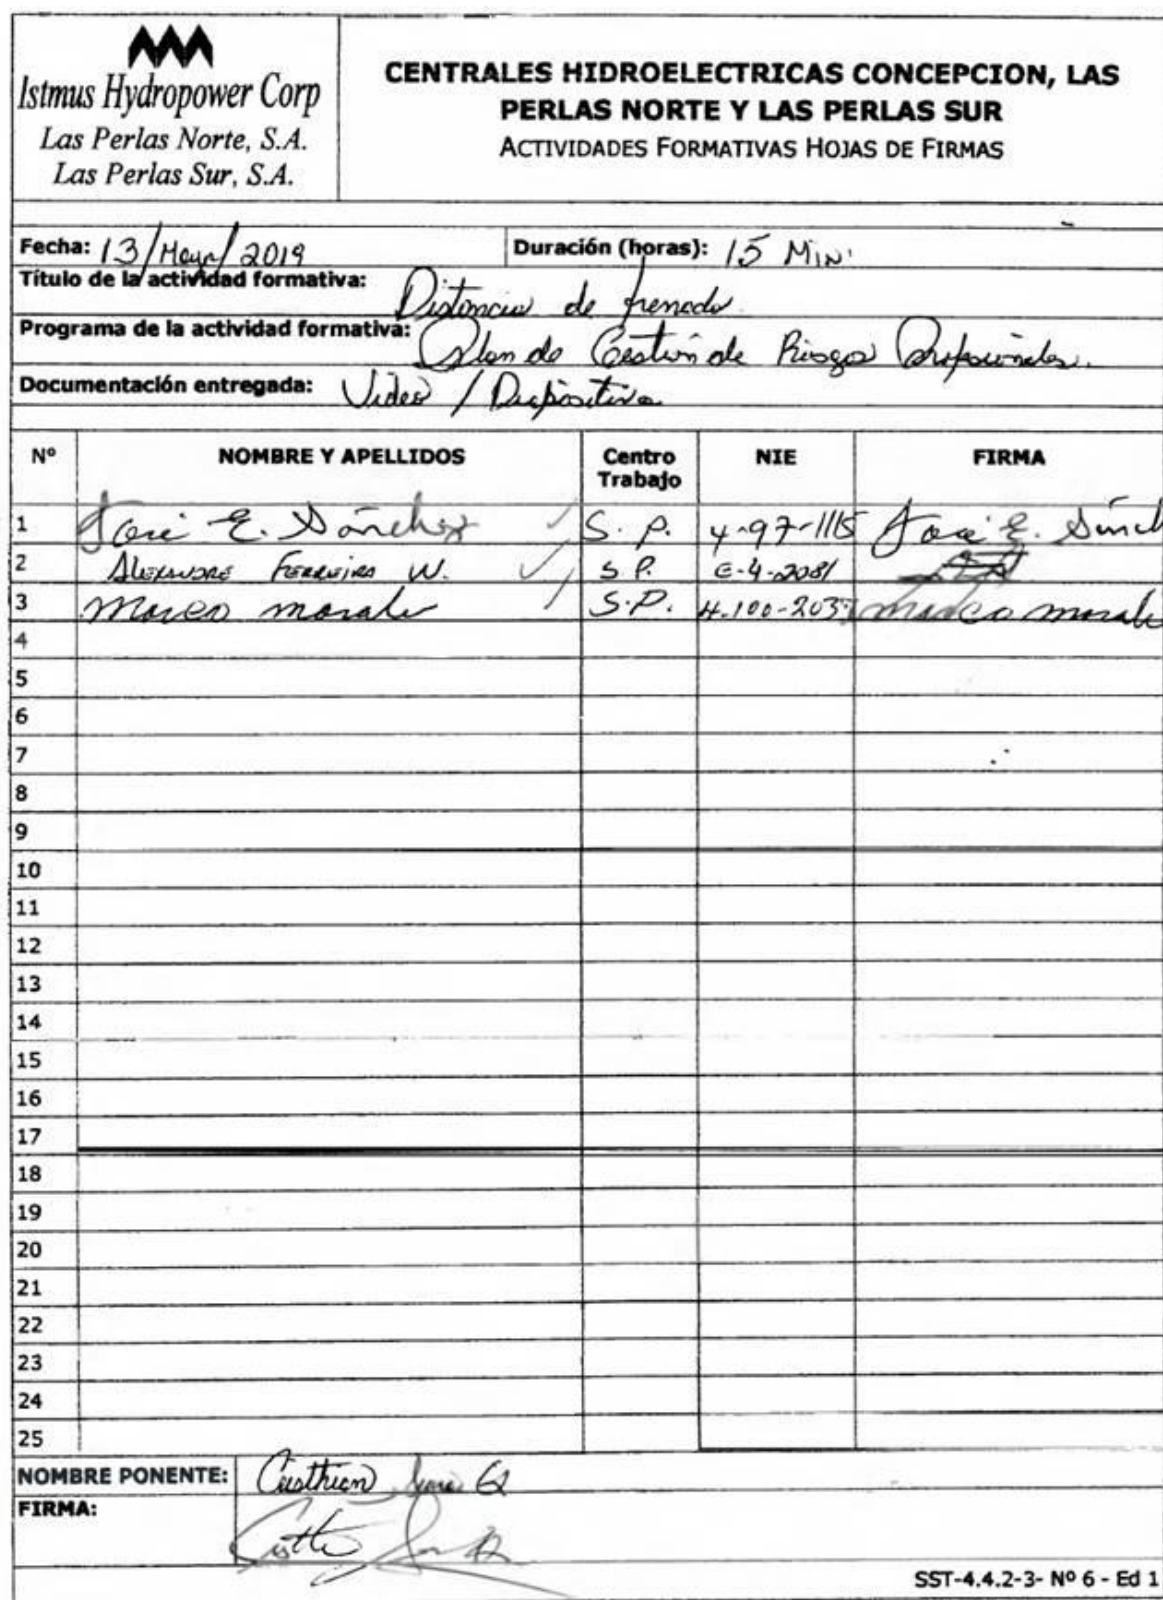 Istmus Hydropower Corp
Las Perlas Norte, S.A.
Las Perlas Sur, S.A.
CENTRALES HIDROELECTRICAS CONCEPCION, LAS
PERLAS NORTE Y LAS PERLAS SUR
ACTIVIDADES FORMATIVAS HOJAS DE FIRMAS
Fecha: 13/Mayo/2019 Duración (horas): 15 MIN.
Título de la actividad formativa: Distancia de frenado
Programa de la actividad formativa: Plan de Gestion de Riesgos Profesionales.
Documentación entregada: Video / Diapositiva
Nº NOMBRE Y APELLIDOS Centro Trabajo NIE FIRMA
1 José E. Sánchez S. P. 4-97-1115 José E. Sánch
2 ALEXANDRE FERREIRA W. S.P. E-4-2081
3 Marco morale S.P. 4-100-203 Marco morale
4
5
6
7
8
9
10
11
12
13
14
15
16
17
18
19
20
21
22
23
24
25
NOMBRE PONENTE: G
FIRMA:
SST-4.4.2-3- Nº 6 - Ed 1